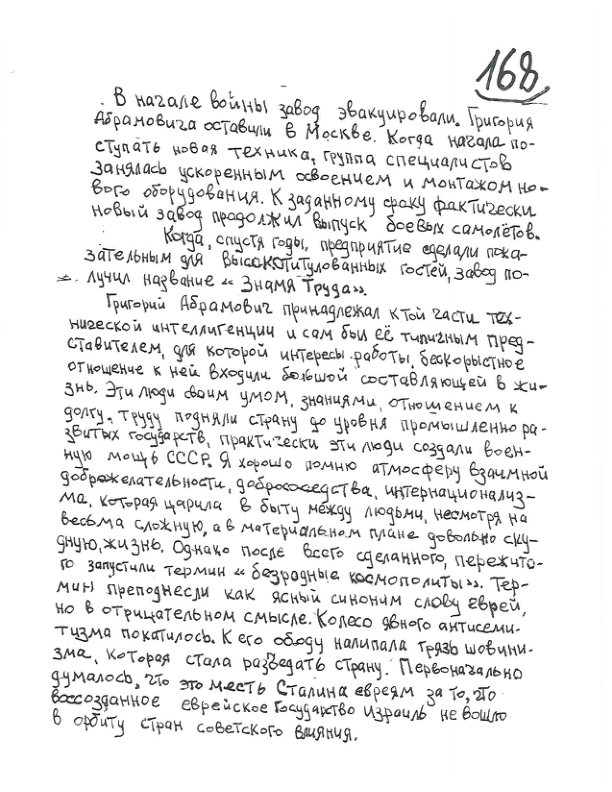 168
В начале войны завод эвакуировали. Григория
Абрамовича оставили в Москве. Когда начала по-
ступать новая техника, группа специалистов
занялась ускоренным освоением и монтажом но-
вого оборудования. К заданному сроку фактически
новый завод продолжил выпуск боевых самолётов.
Когда, спустя годы, предприятие сделали пока-
зательным для высокотитулованных гостей, завод по-
лучил название «Знамя Труда».
Григорий Абрамович принадлежал к той части тех-
нической интеллигенции и сам был её типичным пред-
ставителем, для которой интересы работы, бескорыстное
отношение к ней входили большой составляющей в жи-
знь. Эти люди своим умом, знаниями, отношением к
долгу, труду подняли страну до уровня промышленно ра-
звитых государств, практически эти люди создали воен-
ную мощь СССР. Я хорошо помню атмосферу взаимной
доброжелательности, добрососедства, интернационализ-
ма, которая царила в быту между людьми, несмотря на
весьма сложную, а в материальном плане довольно ску-
дную, жизнь. Однако после всего сделанного, пережито-
го запустили термин «безродные космополиты». Тер-
мин преподнесли как ясный синоним слову еврей,
но в отрицательном смысле. Колесо явного антисеми-
тизма покатилось. К его ободу налипала грязь шовини-
зма, которая стала разъедать страну. Первоначально
думалось, что это месть Сталина евреям за то, что
воссозданное еврейское Государство Израиль не вошло
в орбиту стран советского влияния.